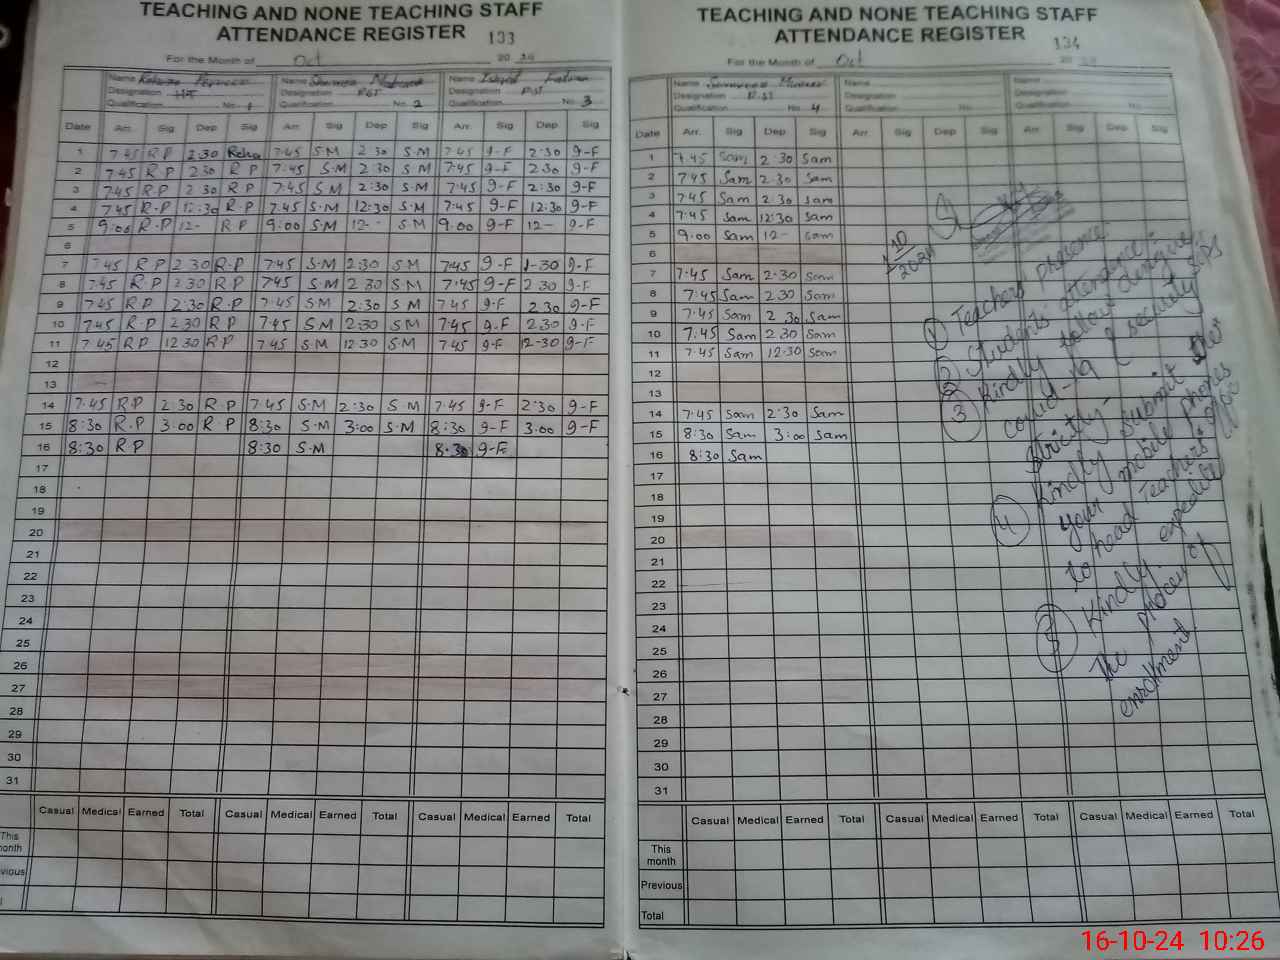 TEACHING AND NONE TEACHING STAFF
ATTENDANCE REGISTER 133
For the Month of Oct 20
Name Name Name
Designation HT Designation PST Designation PST
Qualification No 1 Qualification No 2 Qualification No 3
Date Arr. Sig Dep Sig Arr Sig Dep Sig Arr Sig Dep Sig
1 7.45 R P 2:30 7:45 S-M 2:30 S.M 7.45 9-F 2:30 9-F
2 7:45 R P 2.30 R P 7.45 S.M 2:30 S M 7:45 9-F 2.30 9-F
3 7:45 R P 2.30 R P 7:45 S M 2:30 S.M 7:45 9-F 2:30 9-F
4 7:45 R.P 12:30 R.P 7.45 S.M 12:30 S.M 7.45 9-F 12:30 9-F
5 9:00 R.P 12- R P 9:00 S.M 12- S M 9.00 9-F 12- 9-F
6
7 7:45 R.P 2 30 R.P 7:45 S.M 2:30 S M 7:45 9-F 1-30 9-F
8 7:45 R.P 2.30 R.P 7:45 S.M 2.30 S.M 7.45 9-F 2.30 9-F
9 7:45 R.P 2:30 R.P 7.45 S.M 2:30 S.M 7.45 9-F 2.30 9-F
10 7:45 R.P 2.30 R P 7:45 S.M 2:30 S.M 7:45 9-F 2.30 9-F
11 7:45 R P 12 30 R P 7.45 S.M 12.30 S.M 7.45 9-F 12-30 9-F
12
13
14 7.45 R.P 2:30 R.P 7.45 S.M 2:30 S.M 7.45 9-F 2:30 9-F
15 8:30 R.P 3:00 R P 8:30 S.M 3:00 S.M 8:30 9-F 3.00 9-F
16 8:30 R P 8:30 S.M 8.30 9-F
17
18
19
20
21
22
23
24
25
26
27
28
29
30
31
Casual Medical Earned Total Casual Medical Earned Total Casual Medical Earned Total
This
month
TEACHING AND NONE TEACHING STAFF
ATTENDANCE REGISTER 134
For the Month of Oct 20
Name Name Name
Designation P.ST Designation Designation
Qualification No 4 Qualification No Qualification No
Date Arr. Sig Dep Sig Arr Sig Dep Sig Arr Sig Dep Sig
1 7.45 Sam 2:30 Sam
2 7:45 Sam 2.30 Sam
3 7:45 Sam 2:30 Sam
4 7:45 Sam 12:30 Sam
5 9.00 Sam 12- Sam
6
7 7:45 Sam 2:30 Sam
8 7:45 Sam 2.30 Sam
9 7.45 Sam 2.30 Sam
10 7.45 Sam 2.30 Sam
11 7.45 Sam 12.30 Sam
12
13
14 7:45 Sam 2:30 Sam
15 8:30 Sam 3:00 Sam
16 8:30 Sam
17
18
19
20
21
22
23
24
25
26
27
28
29
30
31
10
2024
① Teachers presence.
② Students attendance.
③ Kindly follow
covid-19 & security SOPs
strictly.
④ Kindly submit
your mobile phones
to head Teachers.
⑤ Kindly expedite
the process of
enrollment
Casual Medical Earned Total Casual Medical Earned Total Casual Medical Earned Total
This
month
Previous
Total
16-10-24 10:26